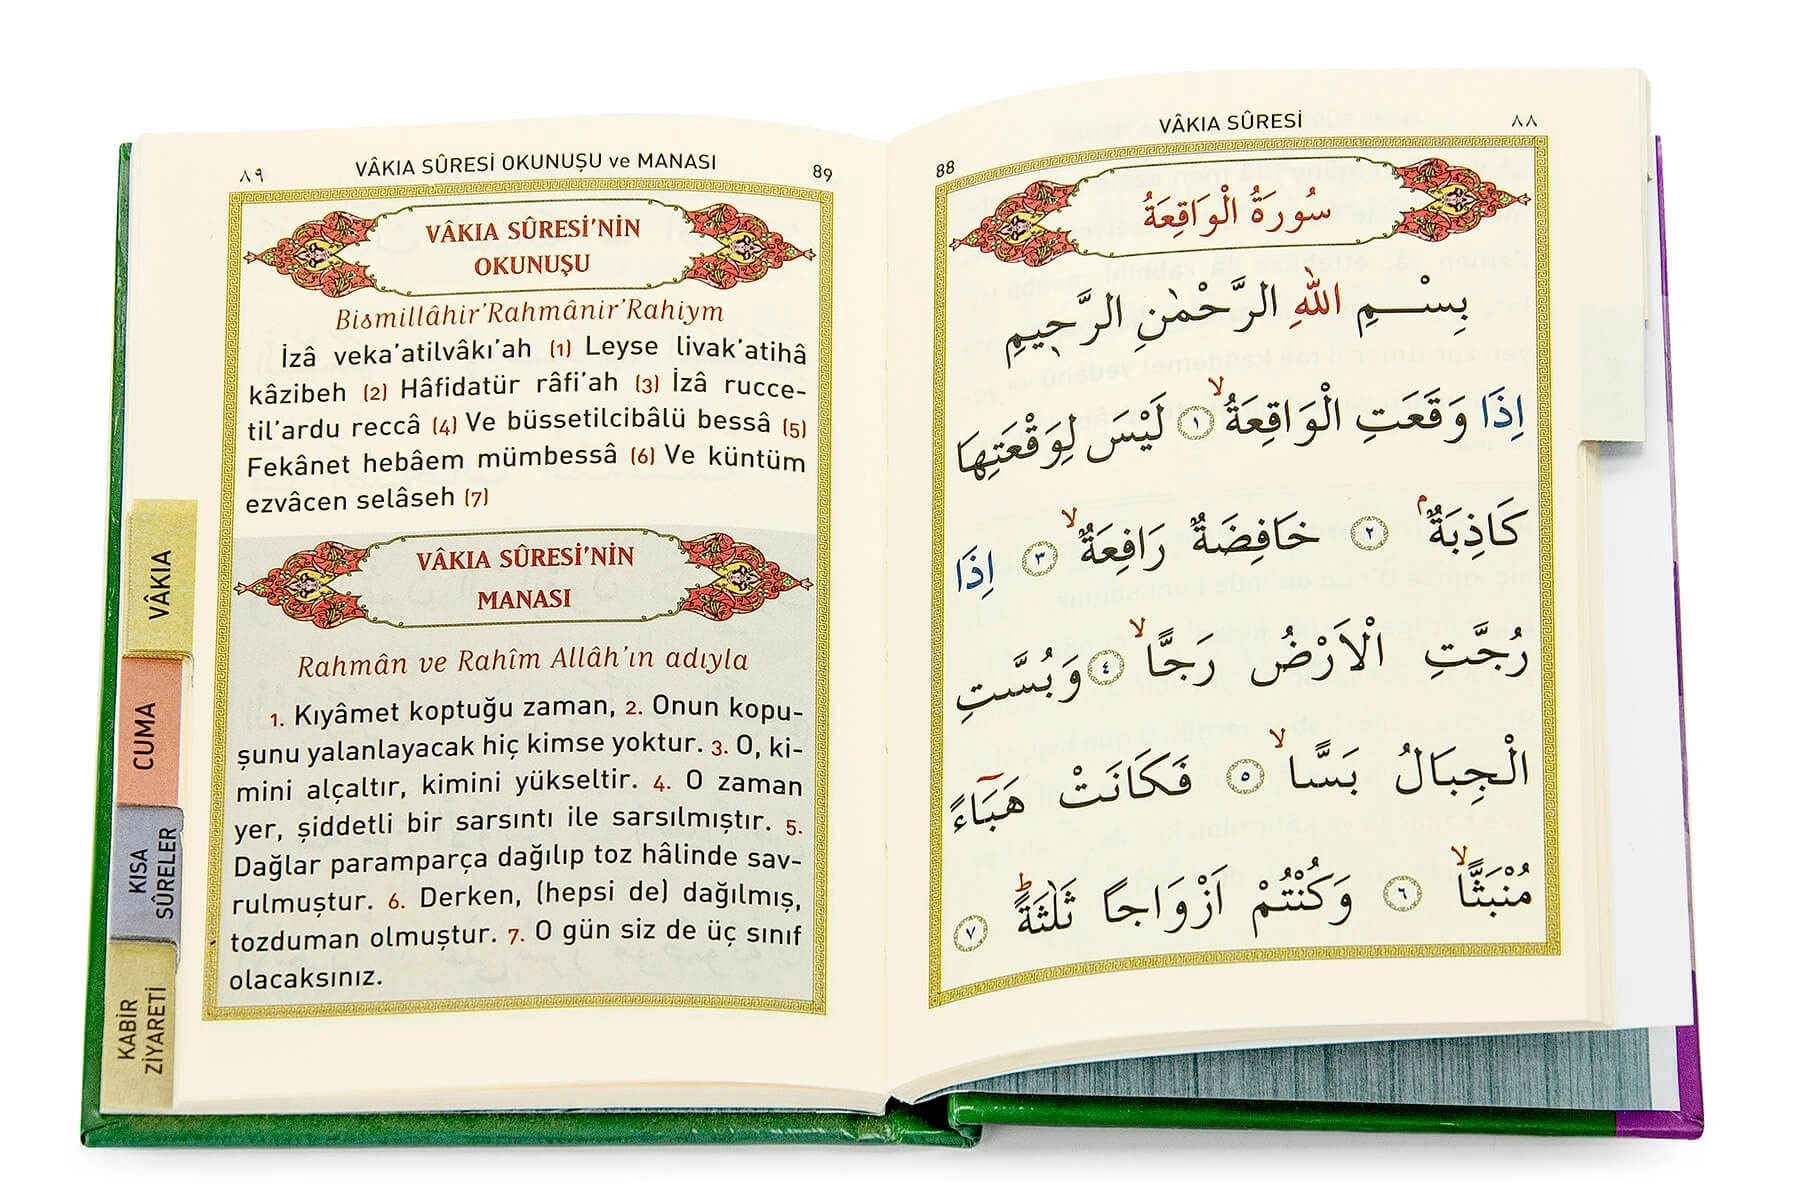 ٨٩ VÂKIA SÛRESİ OKUNUŞU ve MANASI 89
VÂKIA SÛRESİ'NİN
OKUNUŞU
Bismillâhir'Rahmânir'Rahiym
İzâ veka'atilvâkı'ah (1) Leyse livak'atihâ
kâzibeh (2) Hâfidatür râfi'ah (3) İzâ rucce-
til'ardu reccâ (4) Ve büssetilcibâlü bessâ (5)
Fekânet hebâem mümbessâ (6) Ve küntüm
ezvâcen selâseh (7)
VÂKIA SÛRESİ'NİN
MANASI
Rahmân ve Rahîm Allâh'ın adıyla
1. Kıyâmet koptuğu zaman, 2. Onun kopu-
şunu yalanlayacak hiç kimse yoktur. 3. O, ki-
mini alçaltır, kimini yükseltir. 4. O zaman
yer, şiddetli bir sarsıntı ile sarsılmıştır. 5.
Dağlar paramparça dağılıp toz hâlinde sav-
rulmuştur. 6. Derken, (hepsi de) dağılmış,
tozduman olmuştur. 7. O gün siz de üç sınıf
olacaksınız.
VÂKIA
CUMA
KISA
SÛRELER
KABİR
ZİYARETİ
88 VÂKIA SÛRESİ ٨٨
سُورَةُ الْوَاقِعَةُ
بِسْــــمِ اللّٰهِ الرَّحْمٰنِ الرَّحٖيمِ
اِذَا وَقَعَتِ الْوَاقِعَةُۙ ١ لَيْسَ لِوَقْعَتِهَا
كَاذِبَةٌۢ ٢ خَافِضَةٌ رَافِعَةٌۙ ٣ اِذَا
رُجَّتِ الْاَرْضُ رَجًّاۙ ٤ وَبُسَّتِ
الْجِبَالُ بَسًّاۙ ٥ فَكَانَتْ هَبَٓاءً
مُنْبَثًّاۙ ٦ وَكُنْتُمْ اَزْوَاجًا ثَلٰثَةًۜ ٧